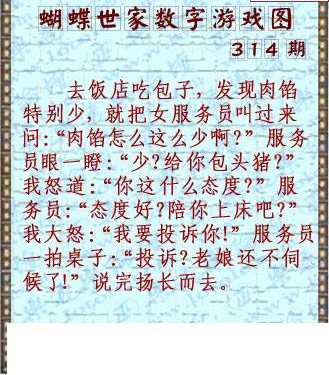 蝴蝶世家数字游戏图
314期
去饭店吃包子，发现肉馅
特别少，就把女服务员叫过来
问:“肉馅怎么这么少啊?” 服务
员眼一瞪:“少?给你包头猪?”
我怒道:“你这什么态度?” 服
务员:“态度好?陪你上床吧?”
我大怒:“我要投诉你!” 服务员
一拍桌子:“投诉?老娘还不伺
候了!” 说完扬长而去。